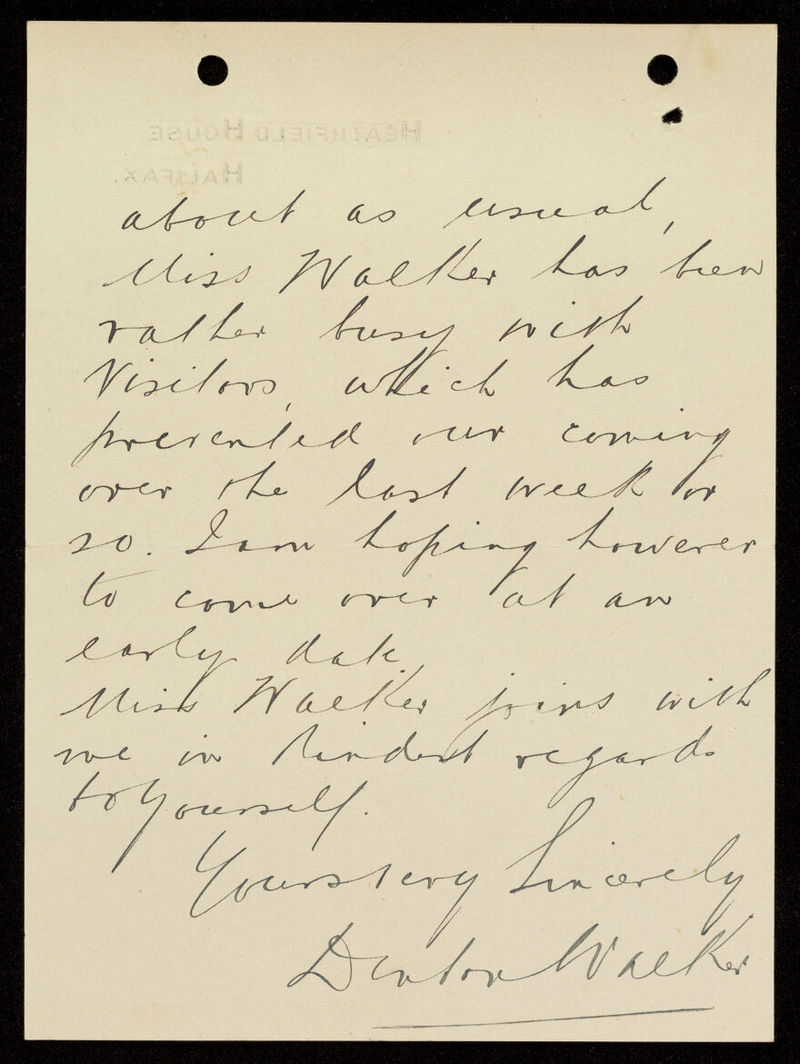 HEATHFIELD HOUSE
HALIFAX.
about as usual,
Miss Walker has been
rather busy with
Visitors, which has
prevented our coming
over the last week or
so. I am hoping however
to come over at an
early date.
Miss Walker joins with
me in kindest regards
to Yourself.
Yours very Sincerely
Denton Walker